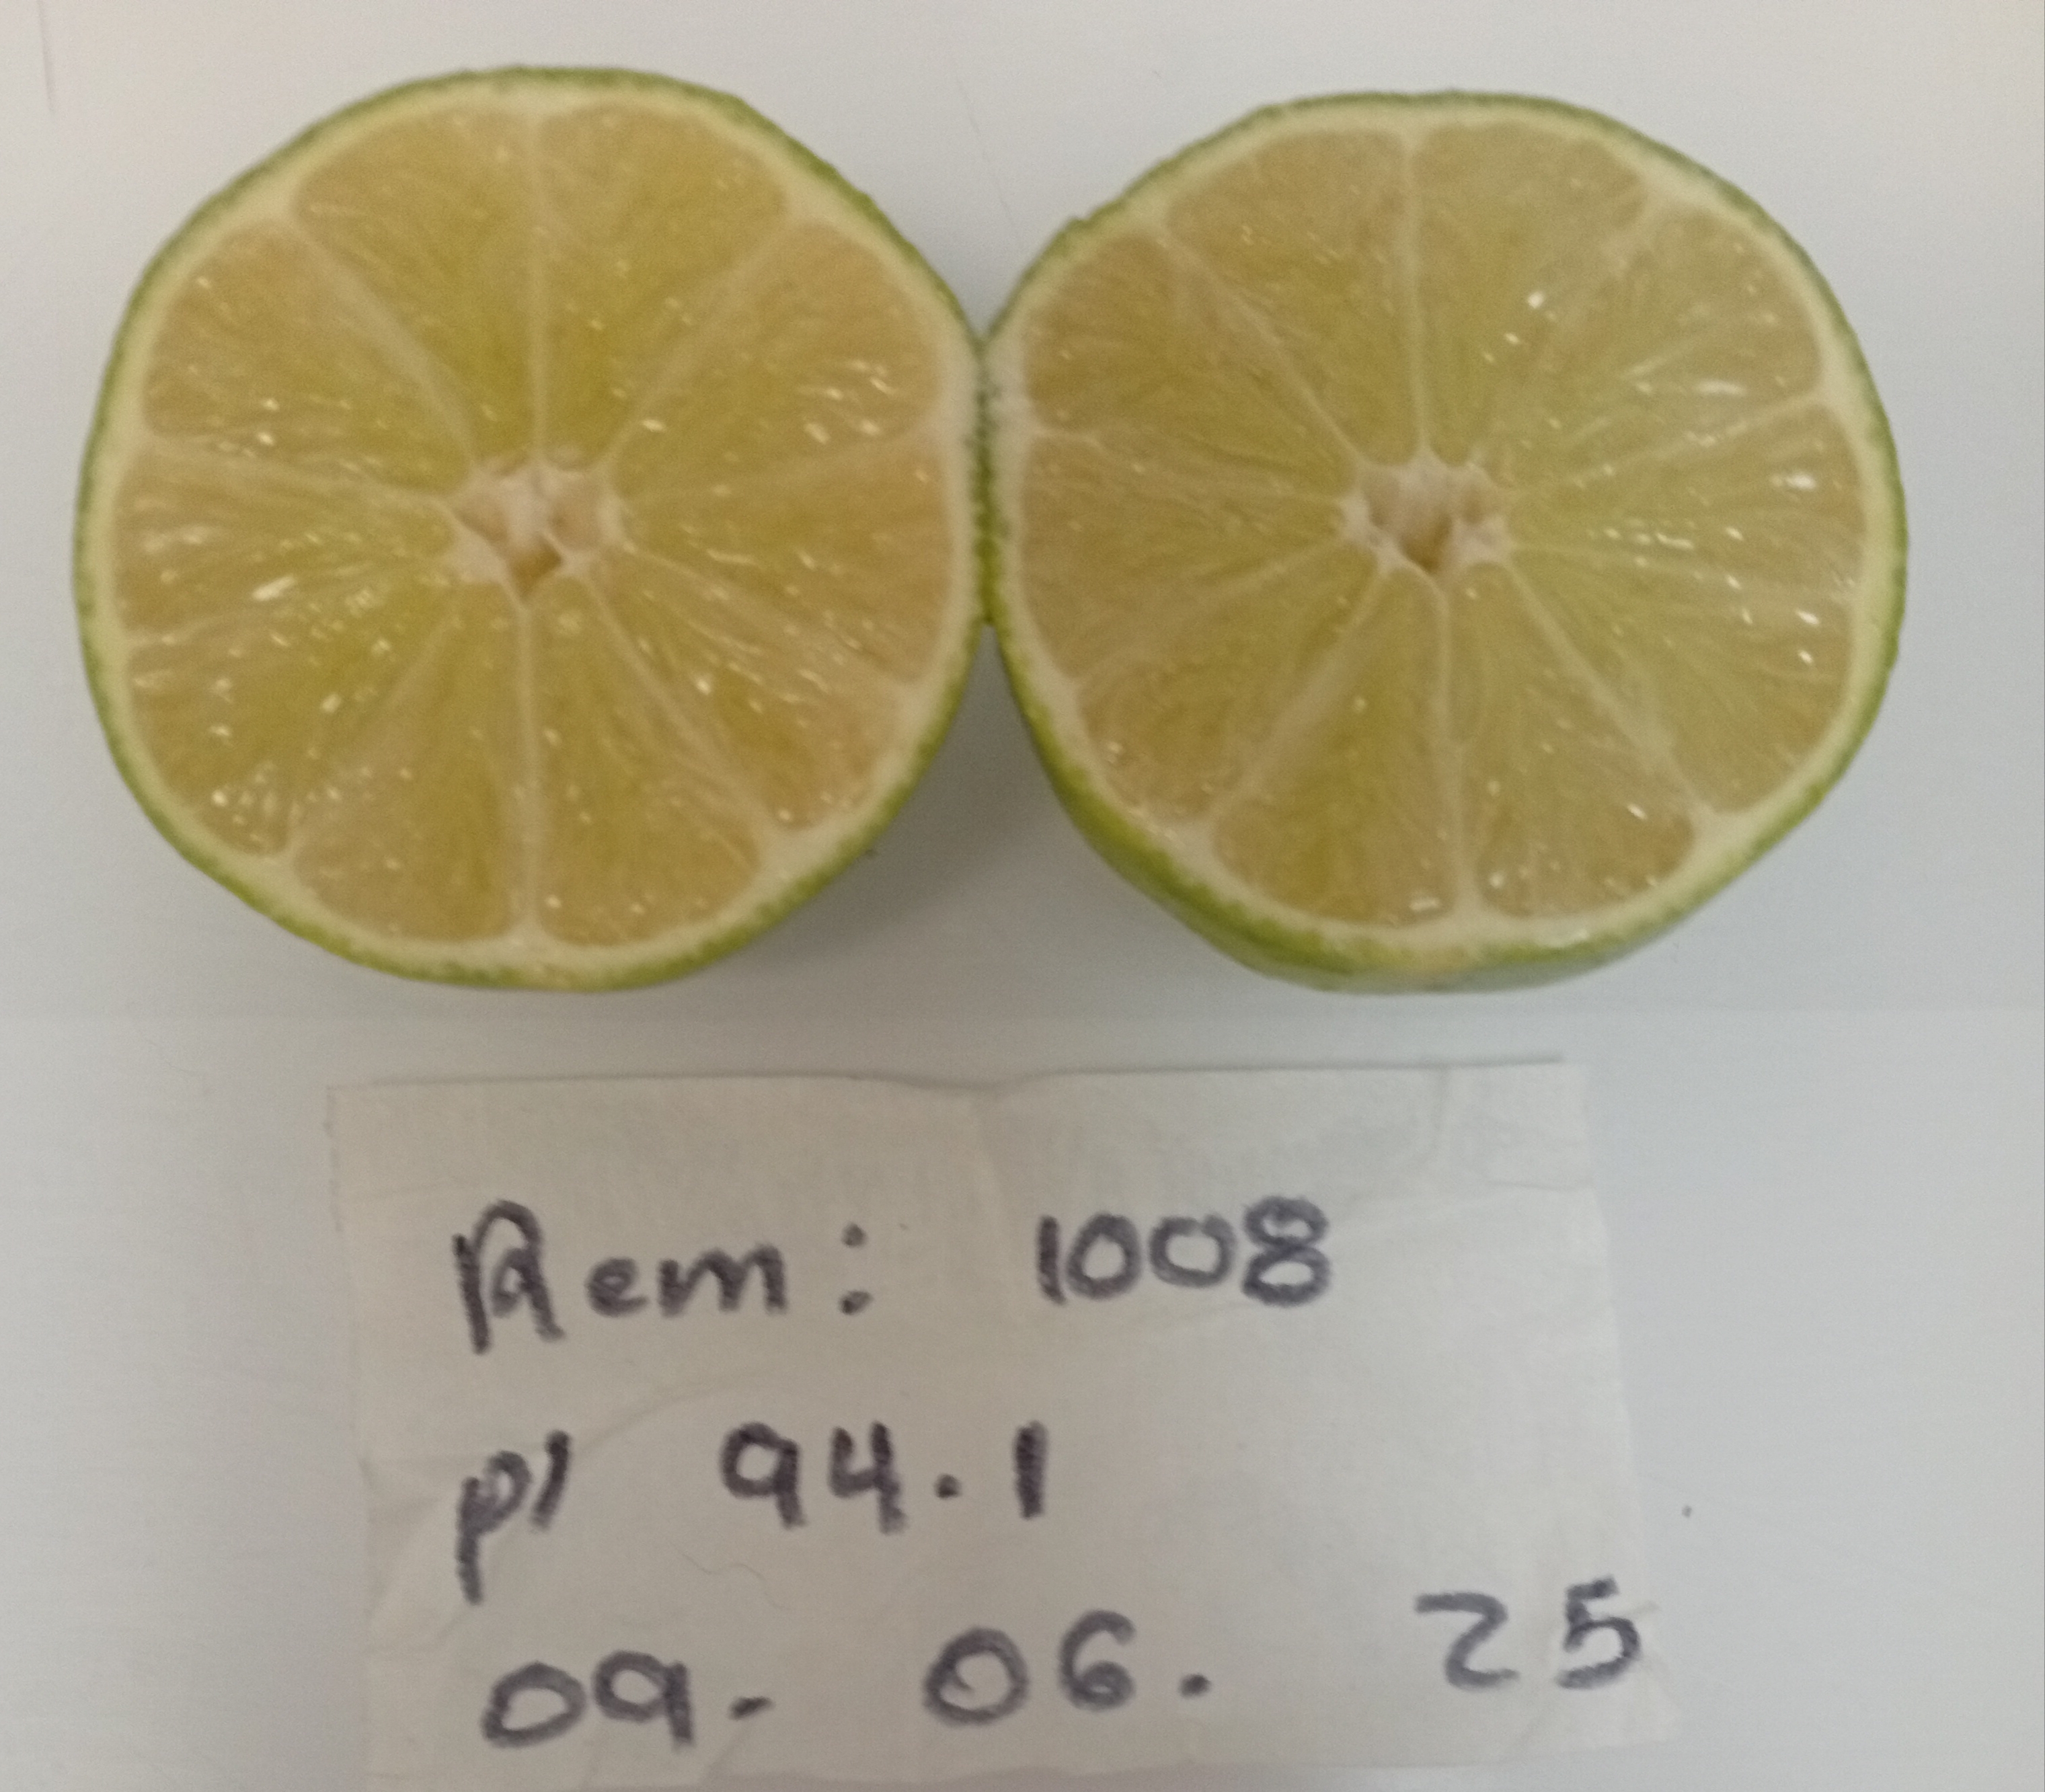 Rem: 1008
pl 94.1
09. 06. 25